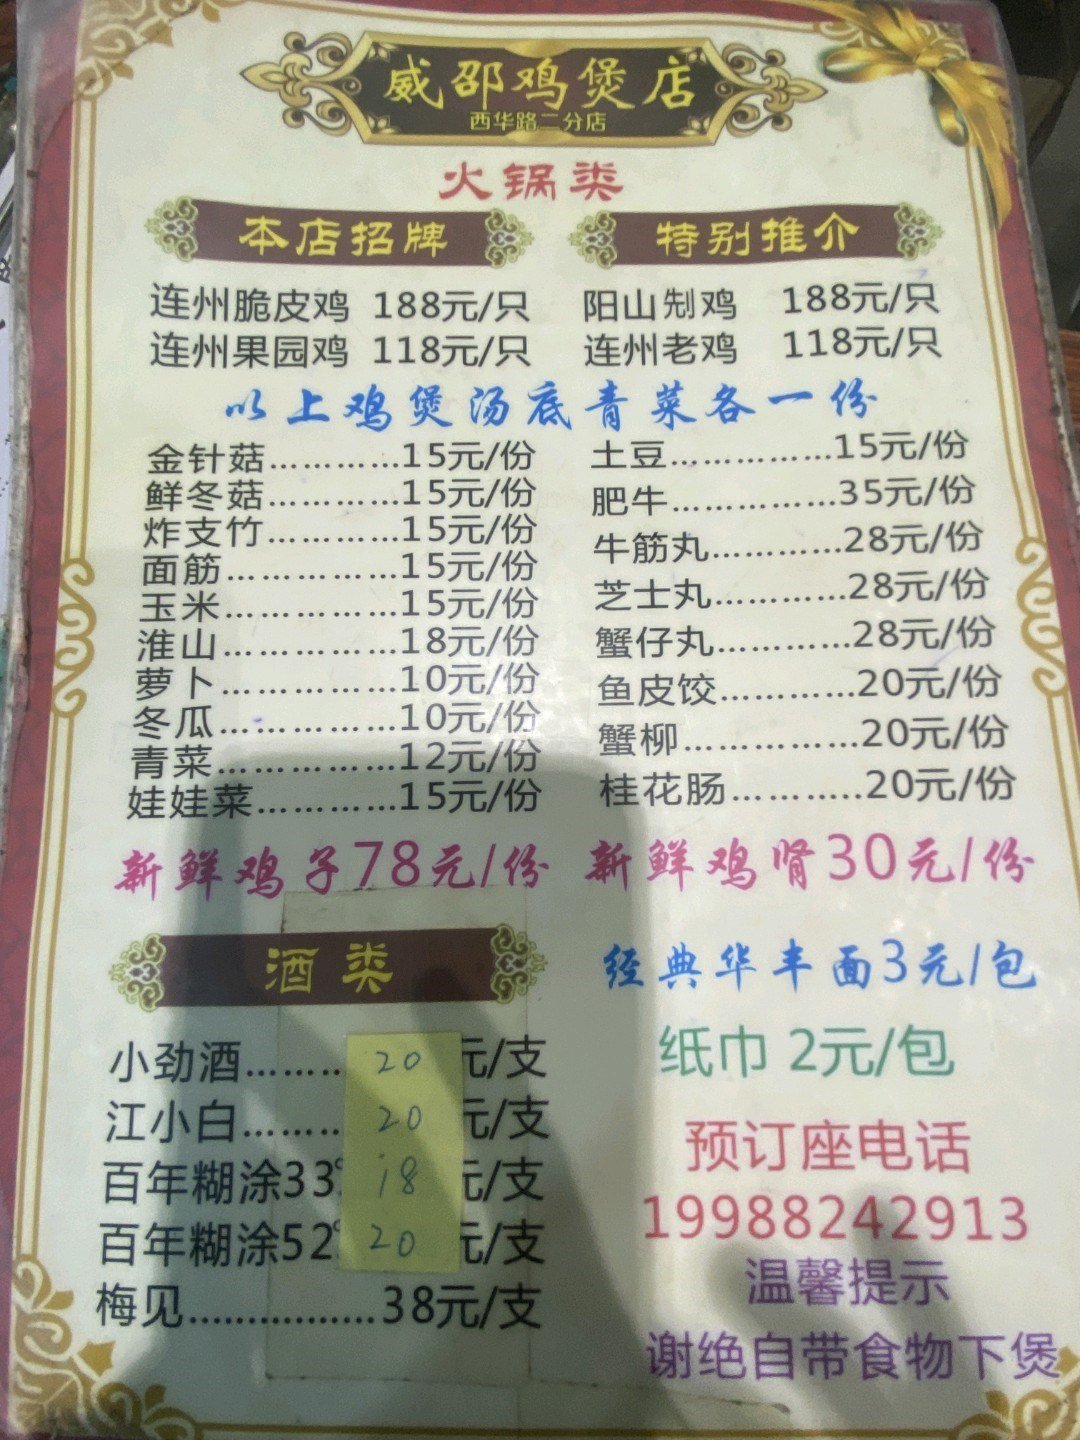 威邵鸡煲店
西华路二分店
火锅类
本店招牌
连州脆皮鸡 188元/只
连州果园鸡 118元/只
特别推介
阳山𠜎鸡 188元/只
连州老鸡 118元/只
以上鸡煲汤底青菜各一份
金针菇…………15元/份
鲜冬菇…………15元/份
炸支竹…………15元/份
面筋……………15元/份
玉米……………15元/份
淮山……………18元/份
萝卜……………10元/份
冬瓜……………10元/份
青菜……………12元/份
娃娃菜…………15元/份
土豆……………15元/份
肥牛……………35元/份
牛筋丸…………28元/份
芝士丸…………28元/份
蟹仔丸…………28元/份
鱼皮饺…………20元/份
蟹柳……………20元/份
桂花肠…………20元/份
新鲜鸡子78元/份
新鲜鸡肾30元/份
酒类
小劲酒……… 20 元/支
江小白……… 20 元/支
百年糊涂33° 18 元/支
百年糊涂52° 20 元/支
梅见………………38元/支
经典华丰面3元/包
纸巾 2元/包
预订座电话
19988242913
温馨提示
谢绝自带食物下煲